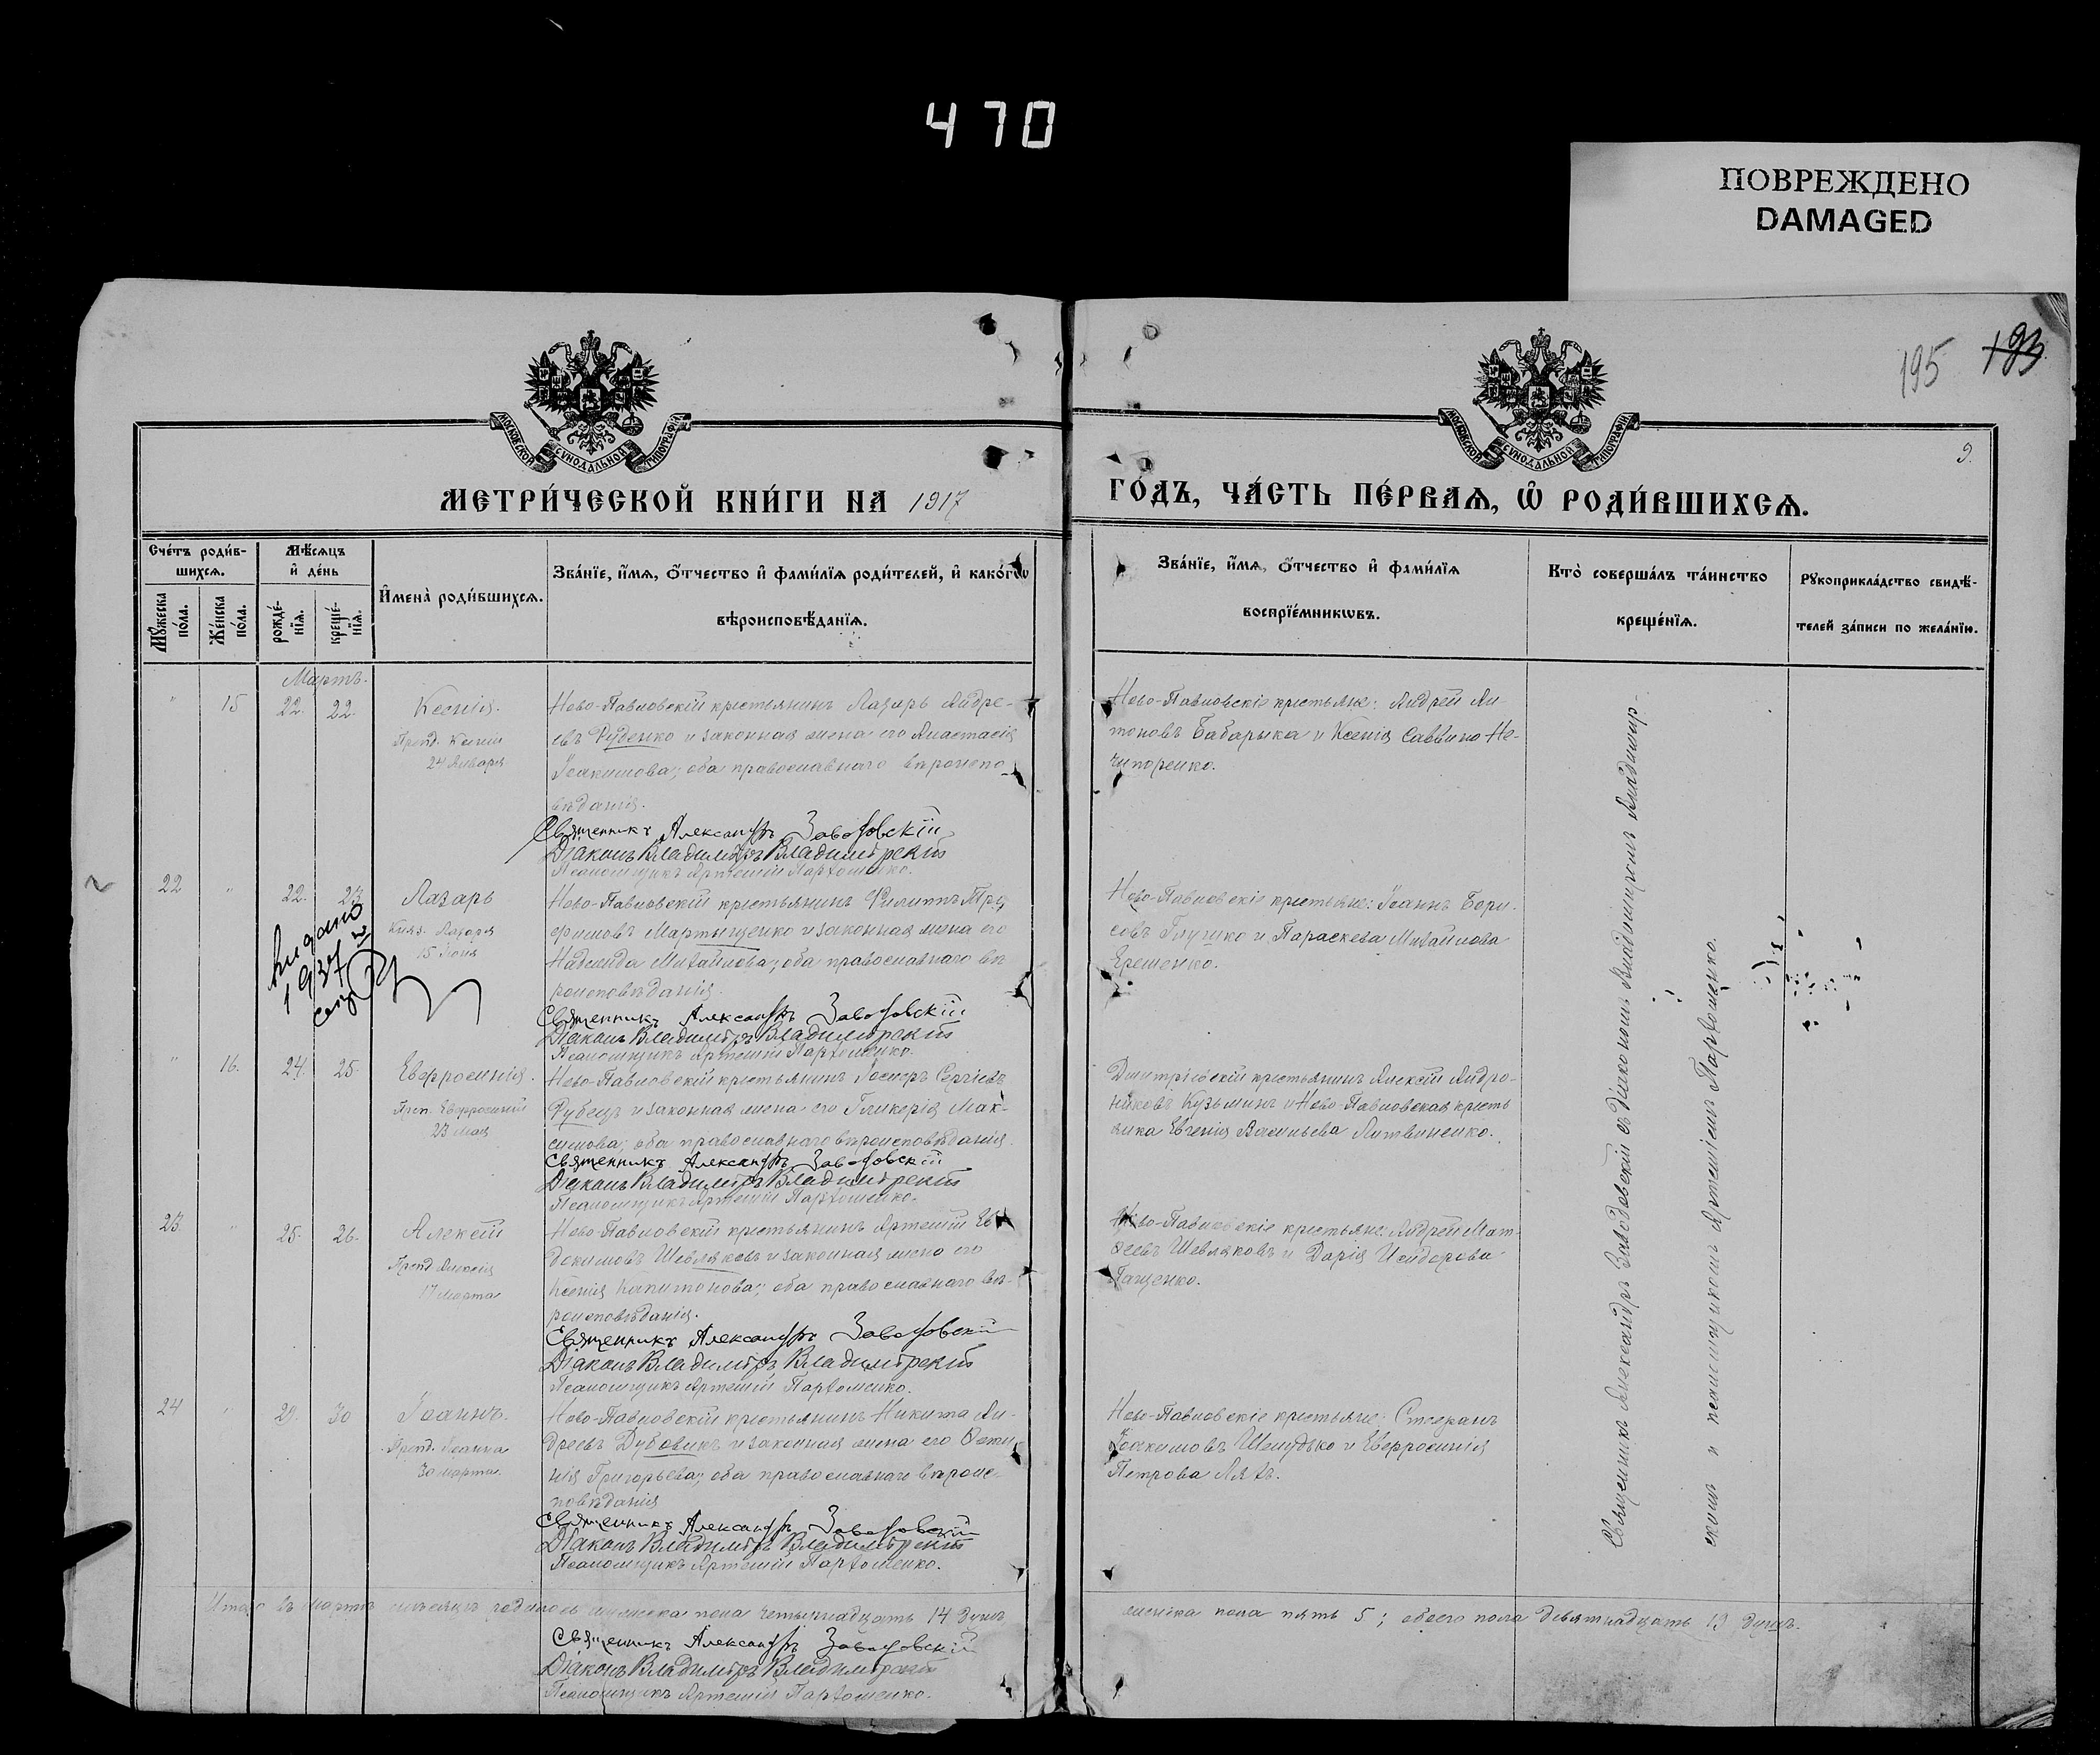 470
ПОВРЕЖДЕНО
DAMAGED
195 193
9.
МОСКОВСКОЙ СѴНОДАЛЬНОЙ ТИПОГРАФІИ
МОСКОВСКОЙ СѴНОДАЛЬНОЙ ТИПОГРАФІИ
МЕТРИ́ЧЕСКОЙ КНИ́ГИ НА 1917
ГО́ДЪ, ЧА́СТЬ ПЕ́РВАѦ, Ѡ҆ РОДИ́ВШИХСѦ.
Сче́тъ роди́в-
шихсѧ.
Мꙋ́жеска по́ла.
Же́нска по́ла.
Мѣ́сѧцъ
и҆ де́нь
рожде́-нїѧ.
креще́-нїѧ.
И҆мена̀ роди́вшихсѧ.
Зва́нїе, и҆́мѧ, ѻ҆́тчество и҆ фами́лїѧ роди́телей, и҆ како́гѡ
вѣроисповѣ́данїѧ.
Зва́нїе, и҆́мѧ, ѻ҆́тчество и҆ фами́лїѧ
воспрїе́мникѡвъ.
Кто̀ соверша́лъ та́инство
креще́нїѧ.
Рꙋкоприкла́дство свидѣ́-
телей за́писи по жела́нїю.
Мартъ.
" 15 22. 22. Ксенія.
Препд. Ксеніи
24 Января
Ново-Павловскій крестьянинъ Лазарь Андре-
евъ Руденко и законная жена его Анастасія
Іоакимова; оба православнаго вѣроиспо-
вѣданія.
Священникъ Александръ Заводовскій
Діаконъ Владиміръ Владимірскій
Псаломщикъ Артемій Пархоменко.
Ново-Павловскіе крестьяне: Андрей Ан-
тоновъ Бабарыка и Ксенія Саввина Не-
чипоренко.
22 " 22. 23. Лазарь
Княз. Лазаря
15 Іюня
1937
Ново-Павловскій крестьянинъ Филиппъ Тро-
фимовъ Мартыщенко и законная жена его
Надежда Михайлова; оба православнаго вѣ-
роисповѣданія.
Священникъ Александръ Заводовскій
Діаконъ Владиміръ Владимірскій
Псаломщикъ Артемій Пархоменко.
Ново-Павловскіе крестьяне: Іоаннъ Бори-
совъ Глушко и Параскева Михайлова
Ерешенко.
" 16. 24. 25. Евфросинія.
Преп. Евфросиніи
23 Мая
Ново-Павловскій крестьянинъ Іосифъ Сергіевъ
Рубецъ и законная жена его Гликерія Мак-
симова; оба православнаго вѣроисповѣданія.
Священникъ Александръ Заводовскій
Діаконъ Владиміръ Владимірскій
Псаломщикъ Артемій Пархоменко.
Дмитріевскій крестьянинъ Алексій Андро-
никовъ Кузьминъ и Ново-Павловская кресть
янка Евгенія Васильева Литвиненко.
23. " 25. 26. Алексій
Препд Алексія
17 марта
Ново-Павловскій крестьянинъ Артемій Ев-
докимовъ Шевляковъ и законная жена его
Ксенія Капитонова; оба православнаго вѣ-
роисповѣданія.
Священникъ Александръ Заводовскій
Діаконъ Владиміръ Владимірскій
Псаломщикъ Артемій Пархоменко.
Ново-Павловскіе крестьяне: Андрей Мат-
ѳеевъ Шевляковъ и Дарія Исидорова
Пащенко.
24 " 29. 30 Іоаннъ.
Препд. Іоанна
30 марта
Ново-Павловскій крестьянинъ Никита Ан-
дреевъ Дубовикъ и законная жена его
Григорьева; оба православнаго вѣроис-
повѣданія
Священникъ Александръ Заводовскій
Діаконъ Владиміръ Владимірскій
Псаломщикъ Артемій Пархоменко.
Ново-Павловскіе крестьяне: Стефанъ
Іоакимовъ Шелудько и Евфросинія
Петрова Ляхъ.
Священникъ Александръ Заводовскій съ діакономъ Владиміромъ Владимір-
скимъ и псаломщикомъ Артеміемъ Пархоменко.
Итого въ мартѣ мѣсяцѣ родилось мужеска пола четырнадцать 14 душъ
женска пола пять 5; обоего пола девятнадцать 19 душъ.
Священникъ Александръ Заводовскій
Діаконъ Владиміръ Владимірскій
Псаломщикъ Артемій Пархоменко.